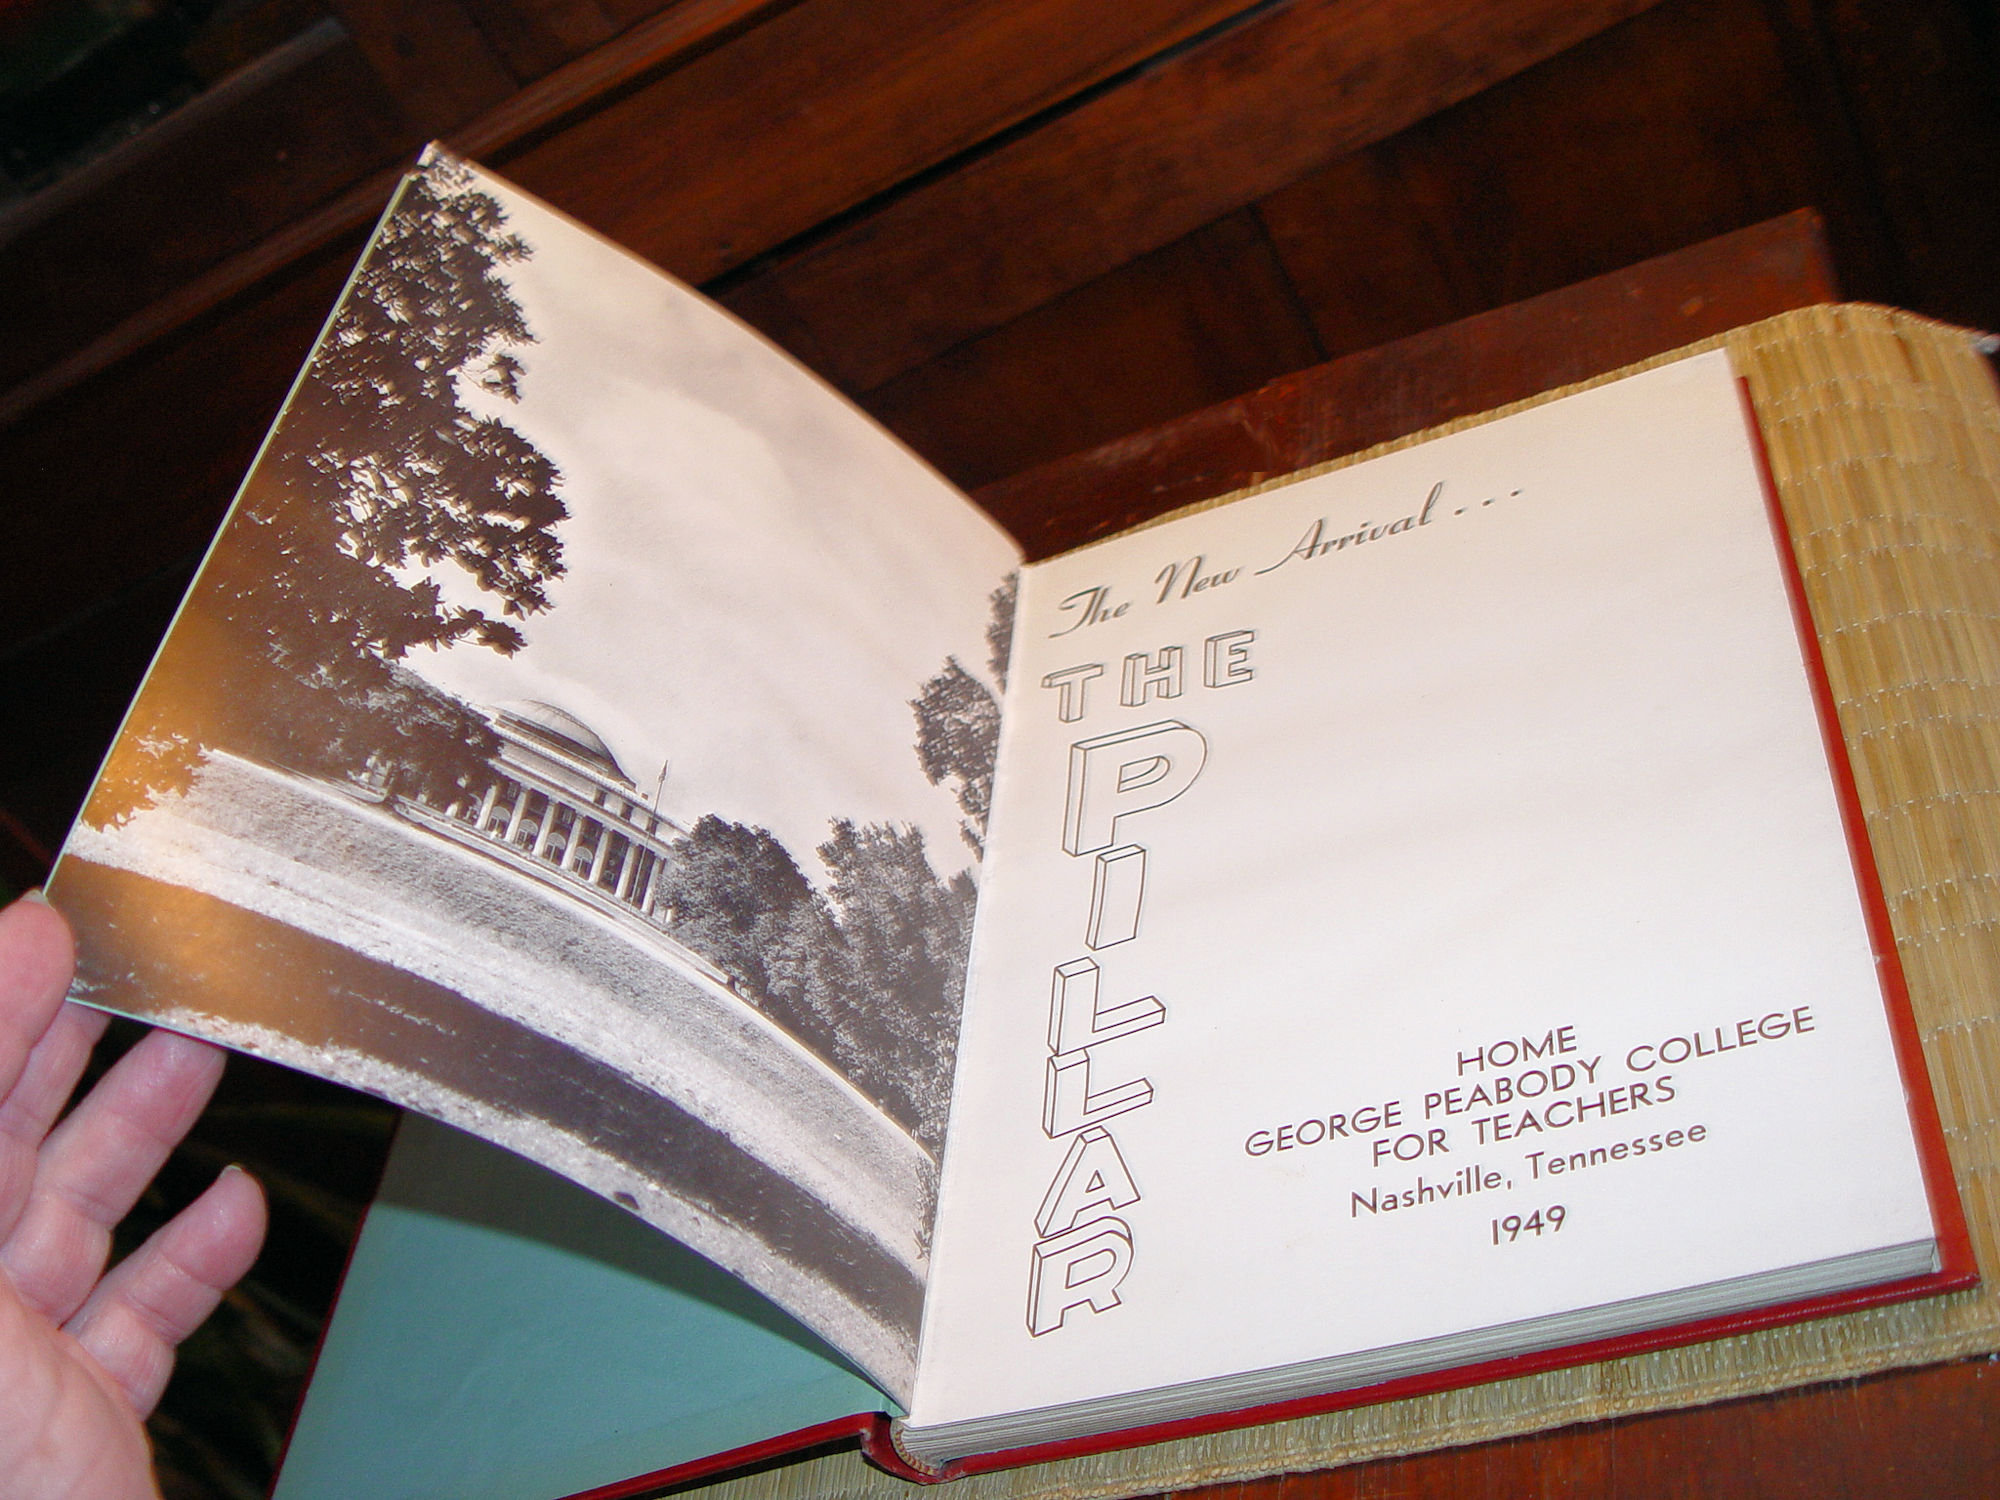 The New Arrival...
THE
PILLAR
HOME
GEORGE PEABODY COLLEGE
FOR TEACHERS
Nashville, Tennessee
1949